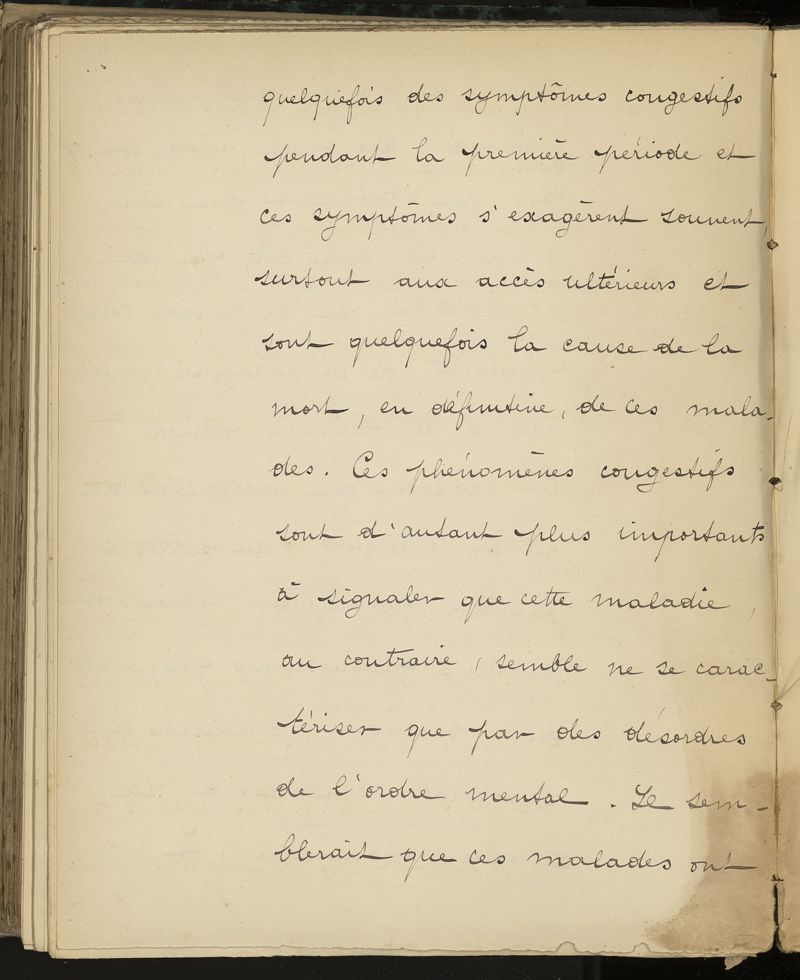 quelquefois des symptômes congestifs
pendant la première période et
ces symptômes s'exagèrent souvent,
surtout aux accès ultérieurs et
sont quelquefois la cause de la
mort, en définitive, de ces mala-
des. Ces phénomènes congestifs
sont d'autant plus importants
à signaler que cette maladie,
au contraire, semble ne se carac-
tériser que par des désordres
de l'ordre mental. Il sem-
blerait que ces malades ont